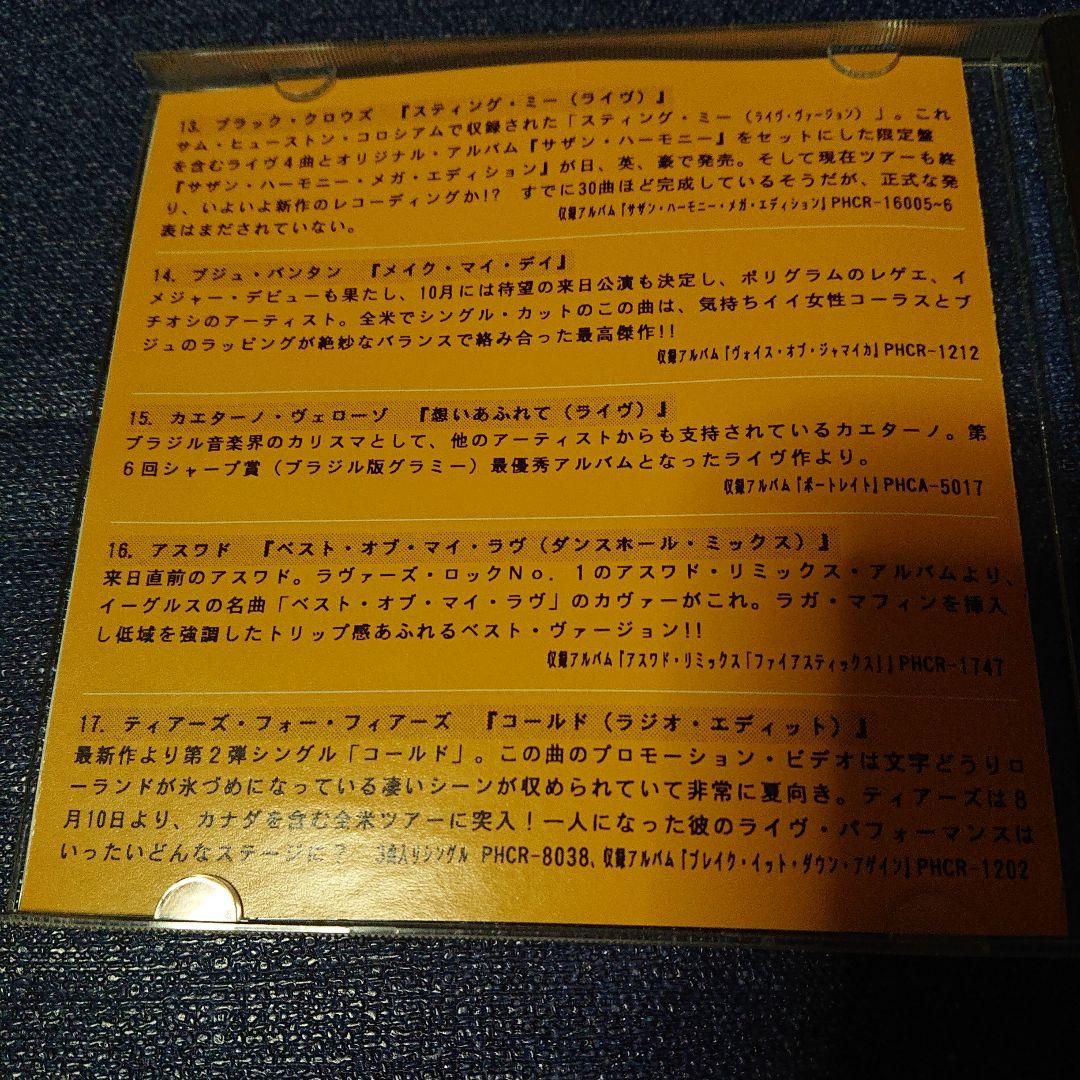 13. ブラック・クロウズ 『スティング・ミー（ライヴ）』
サム・ヒューストン・コロシアムで収録された「スティング・ミー（ライヴ・ヴァージョン）」。これ
を含むライヴ４曲とオリジナル・アルバム『サザン・ハーモニー』をセットにした限定盤
『サザン・ハーモニー・メガ・エディション』が日、英、豪で発売。そして現在ツアーも終
り、いよいよ新作のレコーディングか!? すでに30曲ほど完成しているそうだが、正式な発
表はまだされていない。
収録アルバム『サザン・ハーモニー・メガ・エディション』PHCR-16005~6
14. ブジュ・バンタン 『メイク・マイ・デイ』
メジャー・デビューも果たし、10月には待望の来日公演も決定し、ポリグラムのレゲエ、イ
チオシのアーティスト。全米でシングル・カットのこの曲は、気持ちイイ女性コーラスとブ
ジュのラッピングが絶妙なバランスで絡み合った最高傑作!!
収録アルバム『ヴォイス・オブ・ジャマイカ』PHCR-1212
15. カエターノ・ヴェローゾ 『想いあふれて（ライヴ）』
ブラジル音楽界のカリスマとして、他のアーティストからも支持されているカエターノ。第
６回シャープ賞（ブラジル版グラミー）最優秀アルバムとなったライヴ作より。
収録アルバム『ポートレイト』PHCA-5017
16. アスワド 『ベスト・オブ・マイ・ラヴ（ダンスホール・ミックス）』
来日直前のアスワド。ラヴァーズ・ロックＮｏ．１のアスワド・リミックス・アルバムより、
イーグルスの名曲「ベスト・オブ・マイ・ラヴ」のカヴァーがこれ。ラガ・マフィンを挿入
し低域を強調したトリップ感あふれるベスト・ヴァージョン!!
収録アルバム『アスワド・リミックス「ファイアスティックス」』PHCR-1747
17. ティアーズ・フォー・フィアーズ 『コールド（ラジオ・エディット）』
最新作より第２弾シングル「コールド」。この曲のプロモーション・ビデオは文字どうりロ
ーランドが氷づめになっている凄いシーンが収められていて非常に夏向き。ティアーズは８
月10日より、カナダを含む全米ツアーに突入！一人になった彼のライヴ・パフォーマンスは
いったいどんなステージに？ 3曲入りシングル PHCR-8038、収録アルバム『ブレイク・イット・ダウン・アゲイン』PHCR-1202